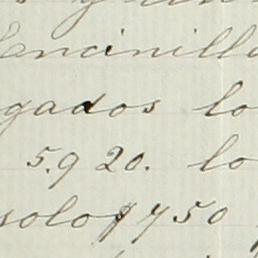 ancinilla
gados lo
5.920. lo
solo $750